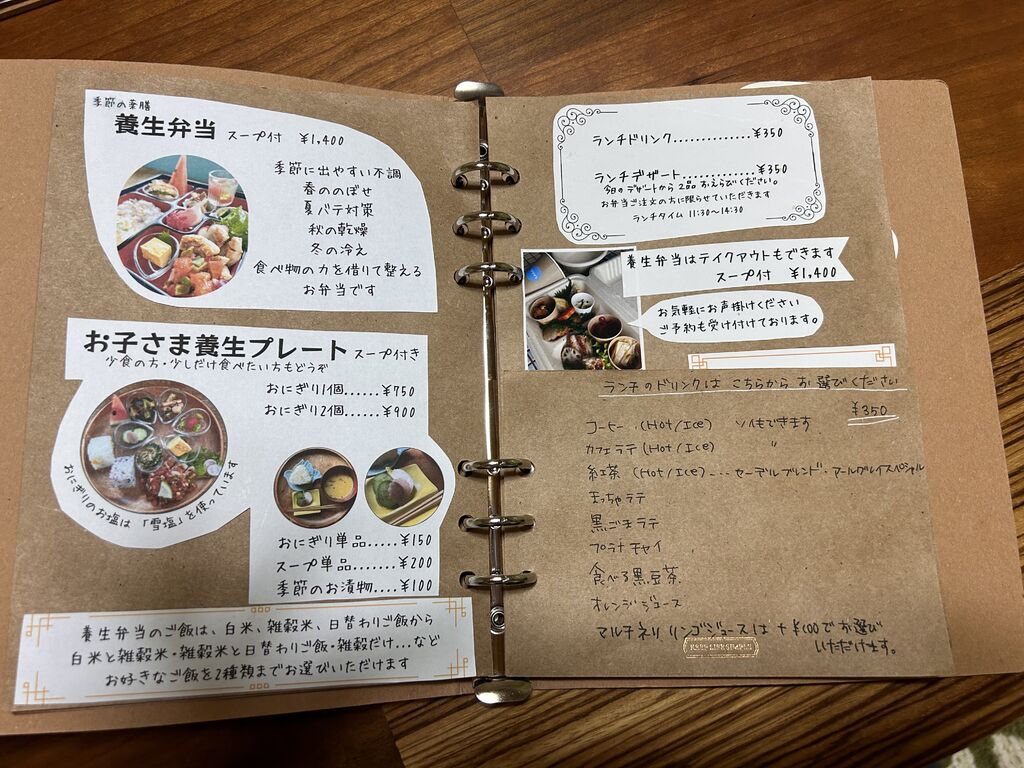 季節の薬膳
養生弁当 スープ付 ¥1,400
季節に出やすい不調
春ののぼせ
夏バテ対策
秋の乾燥
冬の冷え
食べ物の力を借りて整える
お弁当です
お子さま養生プレート スープ付き
少食の方・少しだけ食べたい方もどうぞ
おにぎり1個......¥750
おにぎり2個......¥900
おにぎりのお塩は「雪塩」を使っています
おにぎり単品.....¥150
スープ単品.......¥200
季節のお漬物....¥100
養生弁当のご飯は、白米、雑穀米、日替わりご飯から
白米と雑穀米・雑穀米と日替わりご飯・雑穀だけ...など
お好きなご飯を2種類までお選びいただけます
ランチドリンク..............¥350
ランチデザート.............¥350
今日のデザートから2品おえらびください。
お弁当ご注文の方に限らせていただきます
ランチタイム 11:30~14:30
養生弁当はテイクアウトもできます
スープ付 ¥1,400
お気軽にお声掛けください
ご予約も受け付けております。
ランチのドリンクは こちらから お選びください
¥350
コーヒー (Hot/Ice) ソイもできます
カフェラテ (Hot/Ice) 〃
紅茶 (Hot/Ice)... セーデルブレンド・アールグレイスペシャル
まっちゃラテ
黒ごまラテ
プラナチャイ
食べる黒豆茶
オレンジジュース
マルチネリ リンゴジュースは +¥100でお選び
いただけます。